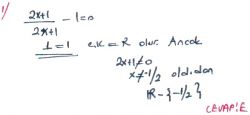 1/
2x+1 / 2x+1 - 1=0
1=1 Ç.K = R olur. Ancak
2x+1≠0
x≠-1/2 olduğundan
R - {-1/2}
CEVAP: E